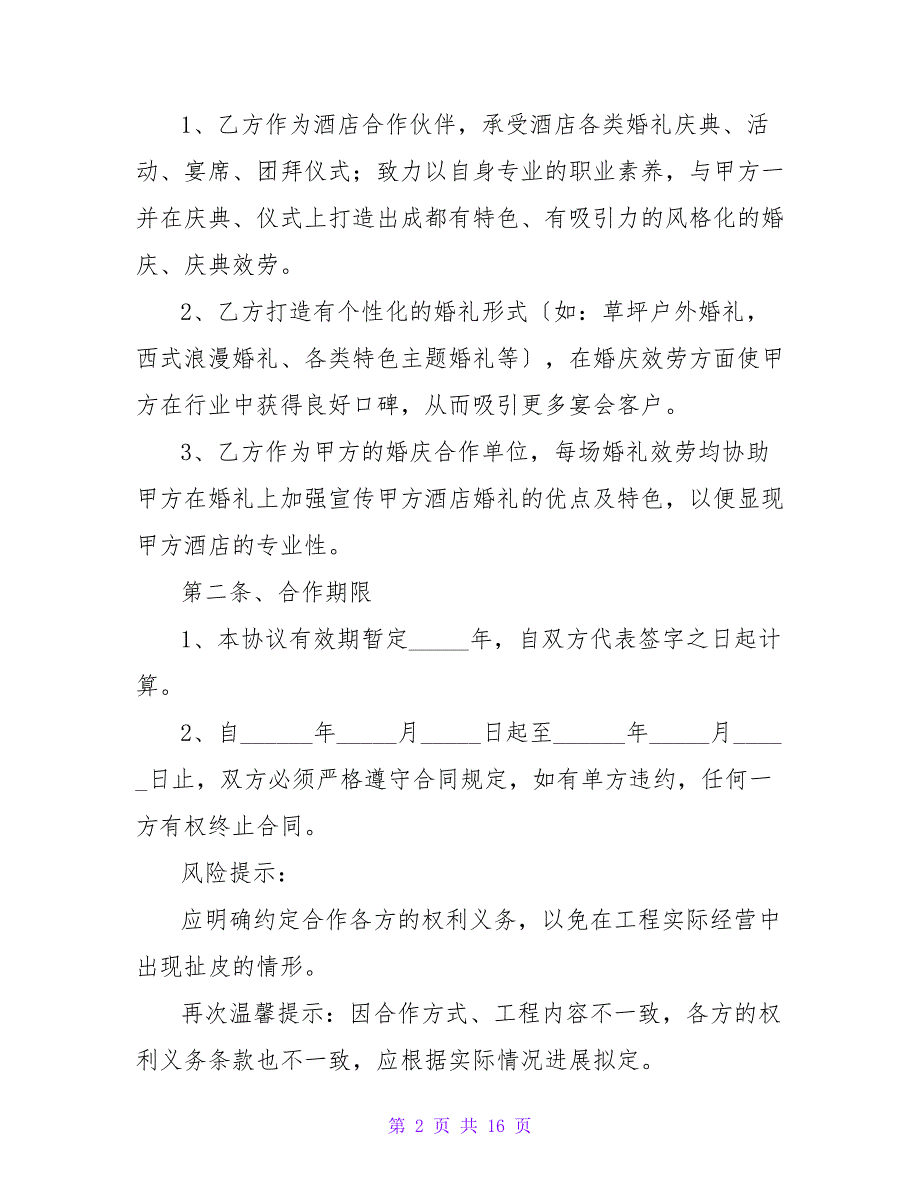 1、乙方作为酒店合作伙伴，承受酒店各类婚礼庆典、活
动、宴席、团拜仪式；致力以自身专业的职业素养，与甲方一
并在庆典、仪式上打造出成都有特色、有吸引力的风格化的婚
庆、庆典效劳。
2、乙方打造有个性化的婚礼形式〔如：草坪户外婚礼，
西式浪漫婚礼、各类特色主题婚礼等〕，在婚庆效劳方面使甲
方在行业中获得良好口碑，从而吸引更多宴会客户。
3、乙方作为甲方的婚庆合作单位，每场婚礼效劳均协助
甲方在婚礼上加强宣传甲方酒店婚礼的优点及特色，以便显现
甲方酒店的专业性。
第二条、合作期限
1、本协议有效期暂定_____年，自双方代表签字之日起计
算。
2、自______年_____月_____日起至______年_____月____
_日止，双方必须严格遵守合同规定，如有单方违约，任何一
方有权终止合同。
风险提示：
应明确约定合作各方的权利义务，以免在工程实际经营中
出现扯皮的情形。
再次温馨提示：因合作方式、工程内容不一致，各方的权
利义务条款也不一致，应根据实际情况进展拟定。
第 2 页 共 16 页